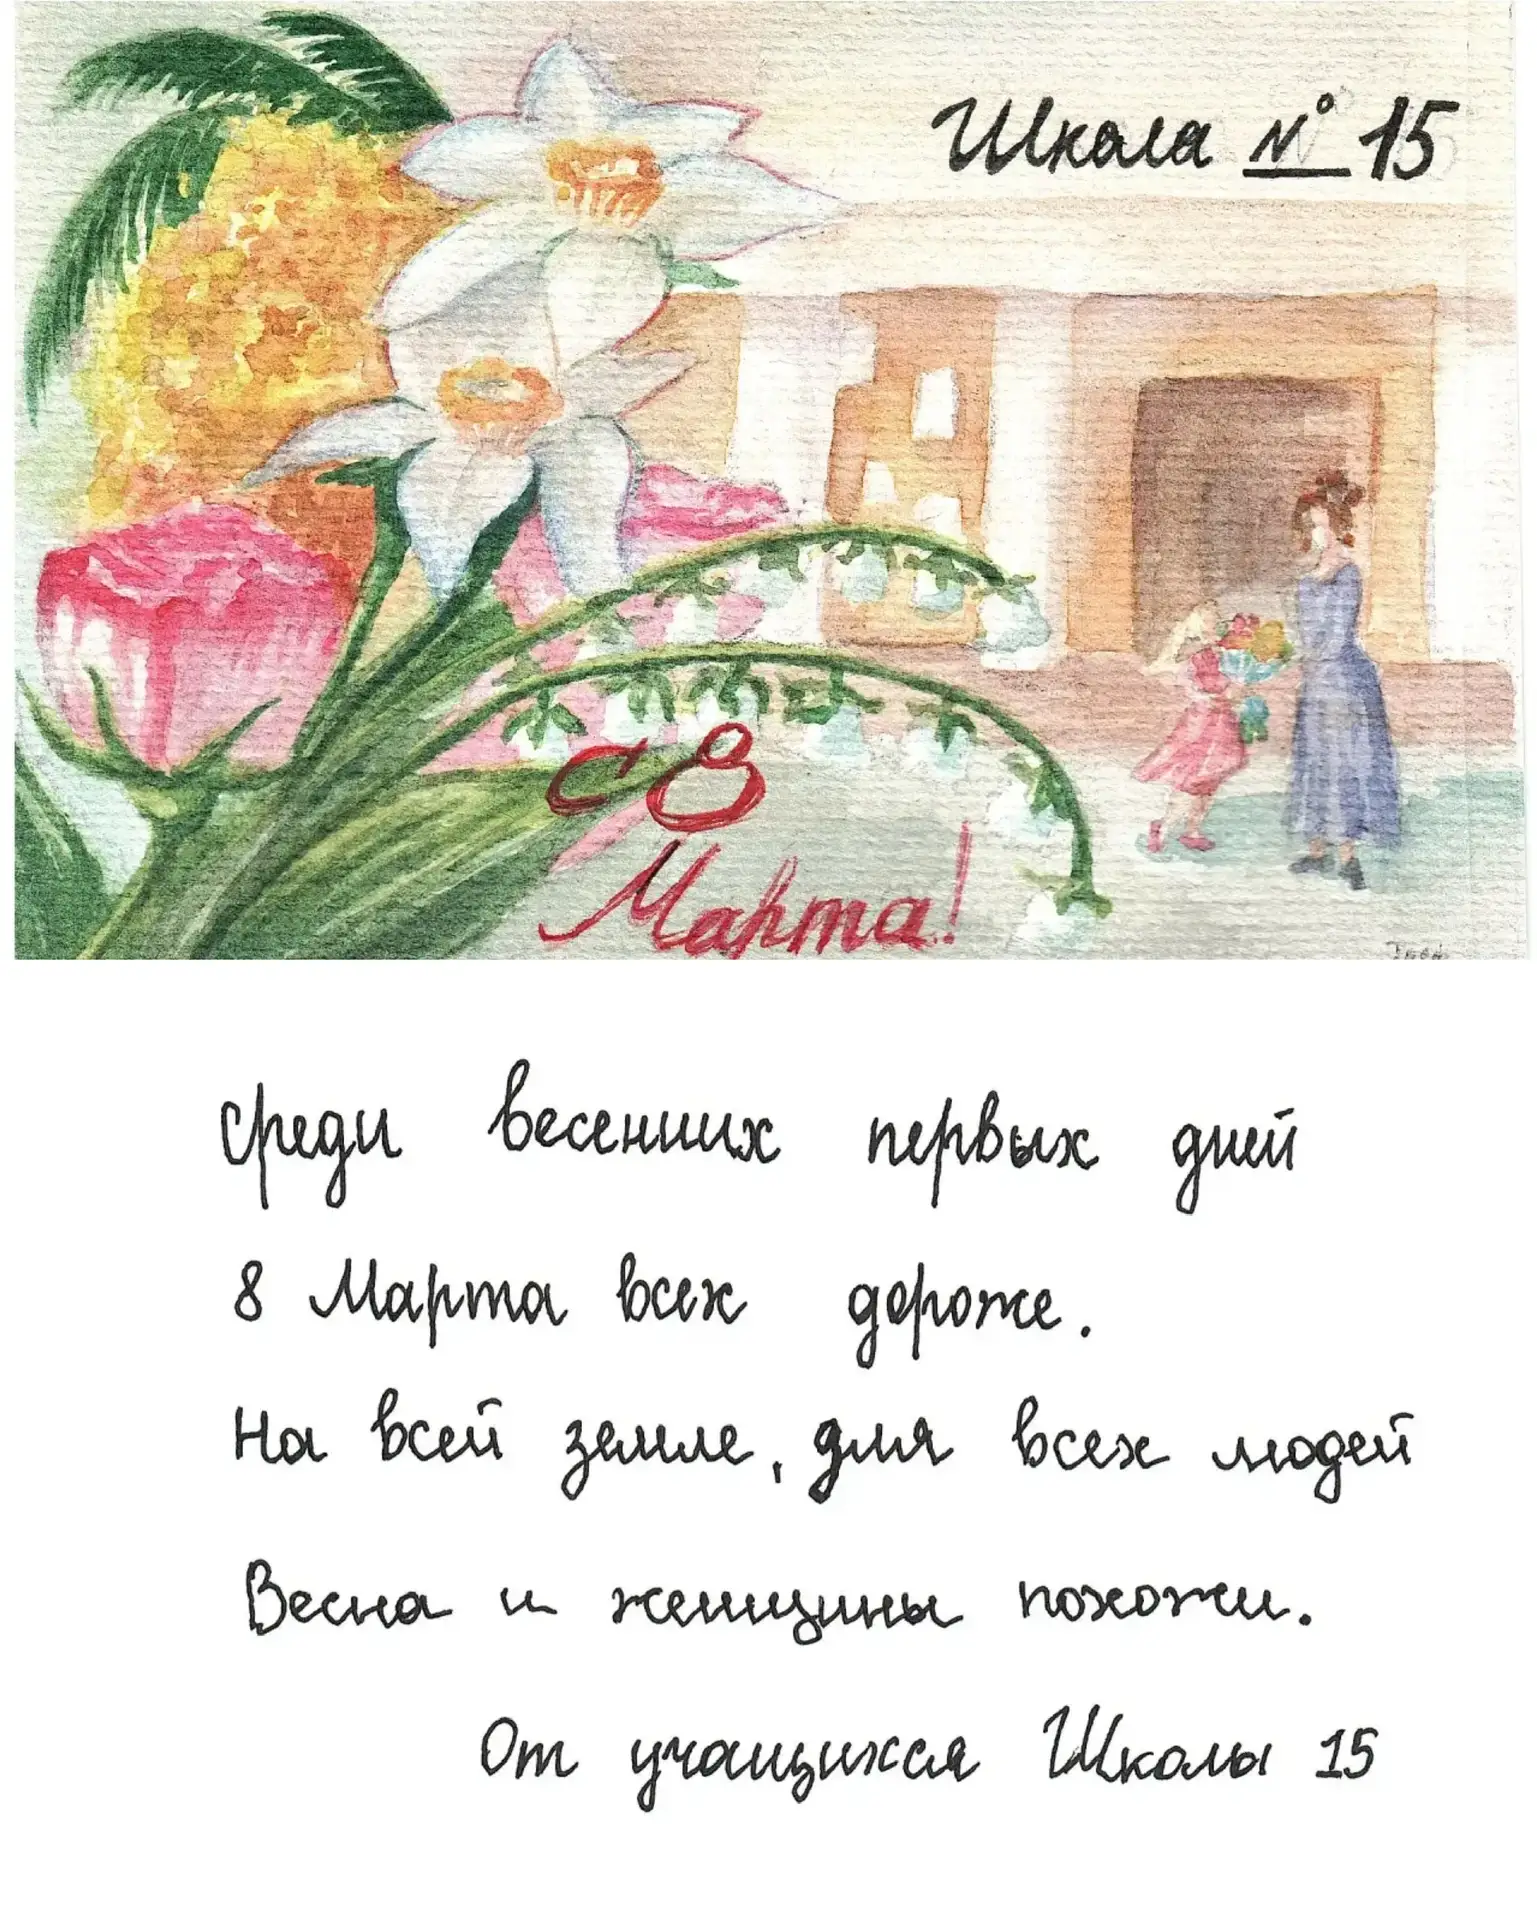 Школа № 15
с 8
Марта!
Среди весенних первых дней
8 Марта всех дороже.
На всей земле, для всех людей
Весна и женщины похожи.
От учащихся Школы 15